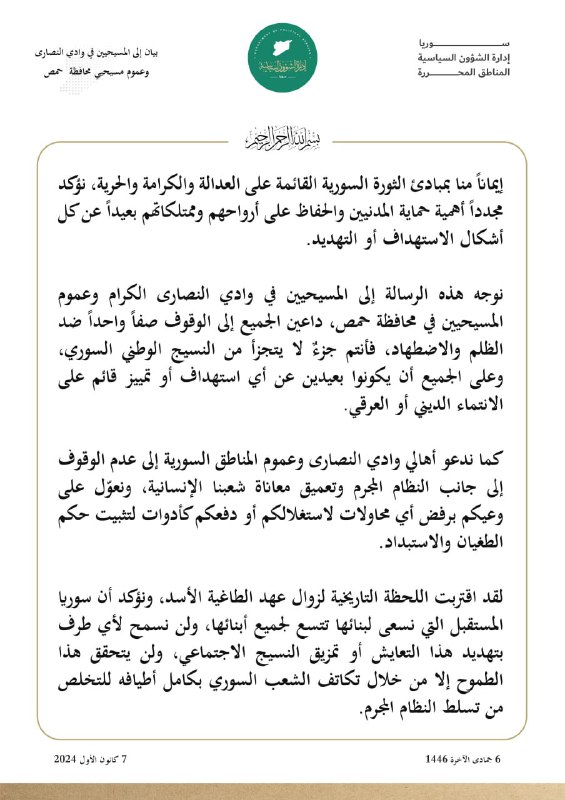 ســـــــــوريا
إدارة الشؤون السياسية
المناطق المحـــــررة
إدارة الشؤون السياسية
بيان إلى المسيحيين في وادي النصارى
وعموم مسيحيي محافظة حمص
بسم الله الرحمن الرحيم
إيماناً منا بمبادئ الثورة السورية القائمة على العدالة والكرامة والحرية، نؤكد
مجدداً أهمية حماية المدنيين والحفاظ على أرواحهم وممتلكاتهم بعيداً عن كل
أشكال الاستهداف أو التهديد.
نوجه هذه الرسالة إلى المسيحيين في وادي النصارى الكرام وعموم
المسيحيين في محافظة حمص، داعين الجميع إلى الوقوف صفاً واحداً ضد
الظلم والاضطهاد، فأنتم جزءٌ لا يتجزأ من النسيج الوطني السوري،
وعلى الجميع أن يكونوا بعيدين عن أي استهداف أو تمييز قائم على
الانتماء الديني أو العرقي.
كما ندعو أهالي وادي النصارى وعموم المناطق السورية إلى عدم الوقوف
إلى جانب النظام المجرم وتعميق معاناة شعبنا الإنسانية، ونعوّل على
وعيكم برفض أي محاولات لاستغلالكم أو دفعكم كأدوات لتثبيت حكم
الطغيان والاستبداد.
لقد اقتربت اللحظة التاريخية لزوال عهد الطاغية الأسد، ونؤكد أن سوريا
المستقبل التي نسعى لبنائها تتسع لجميع أبنائها، ولن نسمح لأي طرف
بتهديد هذا التعايش أو تمزيق النسيج الاجتماعي، ولن يتحقق هذا
الطموح إلا من خلال تكاتف الشعب السوري بكامل أطيافه للتخلص
من تسلط النظام المجرم.
6 جمادى الآخرة 1446
7 كانون الأول 2024